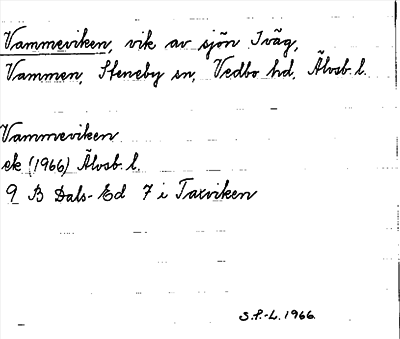 Vammeviken, vik av sjön Iväg,
Vammen, Steneby sn, Vedbo hd, Älvsb. l.
Vammeviken
ek (1966) Älvsb. l.
9 B Dals-Ed 7 i Taxviken
S.P.-L. 1966.